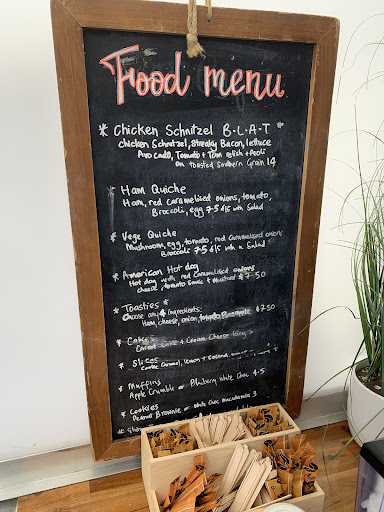 Food menu
* Chicken Schnitzel B·L·A·T *
chicken Schnitzel, Streaky Bacon, lettuce
Avocado, Tomato + Tom relish + Aioli
on toasted Southern Grain 14
* Ham Quiche
Ham, red caramelised onions, tomato,
Broccoli, egg 7·5 d15 with Salad
* Vege Quiche
Mushroom, egg, tomato, red caramelised onions
Broccoli 7·5 d15 w a Salad
* American Hot dog
Hot dog with red caramelised onions
cheese, tomato sauce + mustard $7·50
* Toasties *
Choose any 4 ingredients:
Ham, cheese, onion, tomato, Pineapple $7.50
* Cakes
Carrot Cake + Cream Cheese
* Slices
Caramel, lemon + coconut
* Muffins
Apple Crumble or Blueberry White Choc 4·5
* Cookies
Peanut Brownie or White Choc Macadamia 3